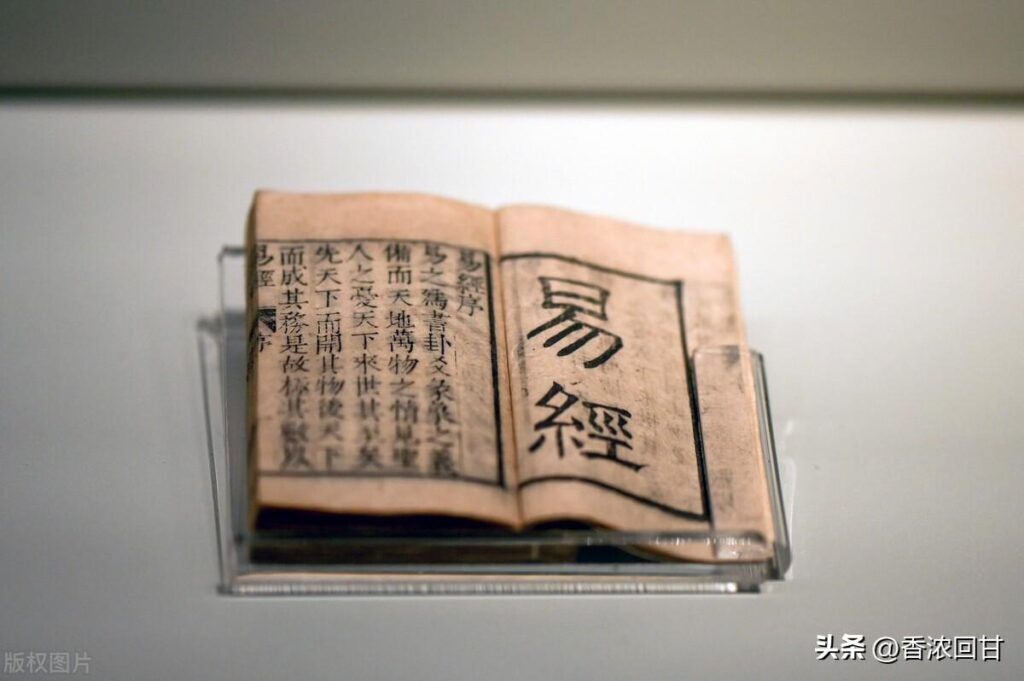 易經
易經序
易之爲書卦爻彖象之義
備而天地萬物之情見聖
人之憂天下來世其至矣
先天下而開其物後天下
而成其務是故極其數以
易經 序
版权图片
头条 @香浓回甘